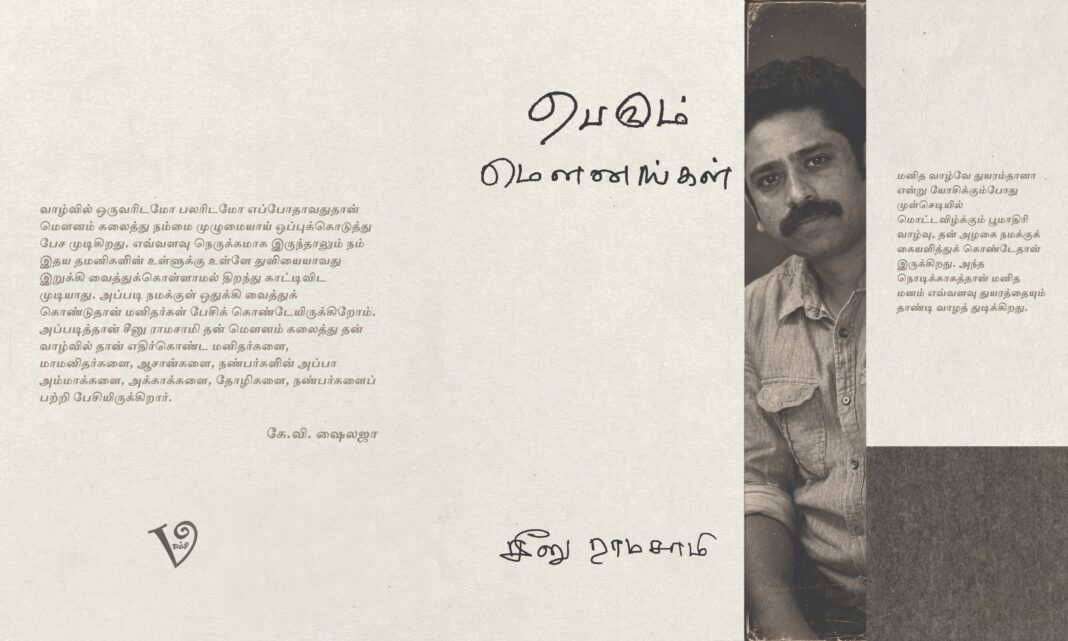 வாழ்வில் ஒருவரிடமோ பலரிடமோ எப்போதாவதுதான்
மௌனம் கலைத்து நம்மை முழுமையாய் ஒப்புக்கொடுத்து
பேச முடிகிறது. எவ்வளவு நெருக்கமாக இருந்தாலும் நம்
இதய தமனிகளின் உள்ளுக்கு உள்ளே துளியையாவது
இறுக்கி வைத்துக்கொள்ளாமல் திறந்து காட்டிவிட
முடியாது. அப்படி நமக்குள் ஒதுக்கி வைத்துக்
கொண்டுதான் மனிதர்கள் பேசிக் கொண்டேயிருக்கிறோம்.
அப்படித்தான் சீனு ராமசாமி தன் மௌனம் கலைத்து தன்
வாழ்வில் தான் எதிர்கொண்ட மனிதர்களை,
மாமனிதர்களை, ஆசான்களை, நண்பர்களின் அப்பா
அம்மாக்களை, அக்காக்களை, தோழிகளை, நண்பர்களைப்
பற்றி பேசியிருக்கிறார்.
கே.வி. ஷைலஜா
வம்சி
பெரும்
மௌனங்கள்
சீனு ராமசாமி
மனித வாழ்வே துயரம்தானா
என்று யோசிக்கும்போது
முள்செடியில்
மொட்டவிழ்க்கும் பூமாதிரி
வாழ்வு, தன் அழகை நமக்குக்
கையளித்துக் கொண்டேதான்
இருக்கிறது. அந்த
நொடிக்காகத்தான் மனித
மனம் எவ்வளவு துயரத்தையும்
தாண்டி வாழத் துடிக்கிறது.